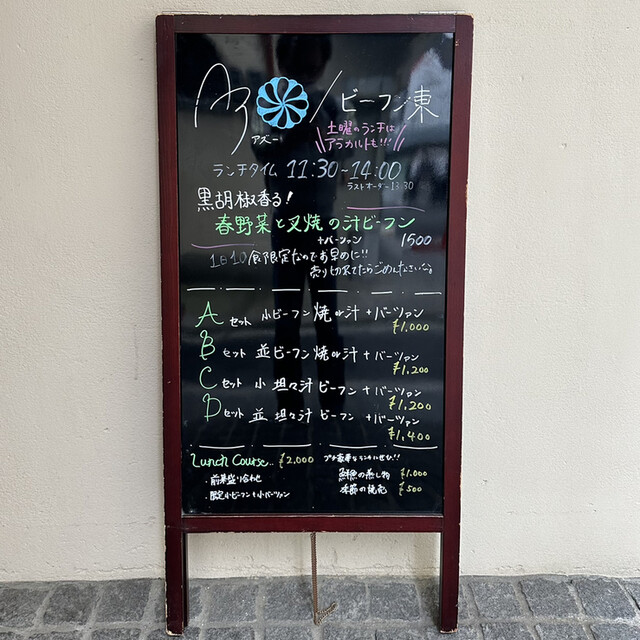 Az / ビーフン東
アズー
土曜のランチは
アラカルトも!!!
ランチタイム 11:30~14:00
ラストオーダー 13:30
黒胡椒香る!
春野菜と叉焼の汁ビーフン
+バーツァン 1500
1日10食限定なのでお早めに!!
売り切れてたらごめんなさい
Aセット 小ビーフン 焼or汁 +バーツァン ¥1.000
Bセット 並ビーフン 焼or汁 +バーツァン ¥1,200
Cセット 小 坦々汁 ビーフン +バーツァン ¥1,200
Dセット 並 坦々汁 ビーフン +バーツァン ¥1,400
Lunch Course.. ¥2,000
・前菜盛り合わせ
・限定小ビーフン+小バーツァン
プチ豪華なランチにぜひ!!
鮮魚の蒸し物 ¥1.000
季節の焼売 ¥500